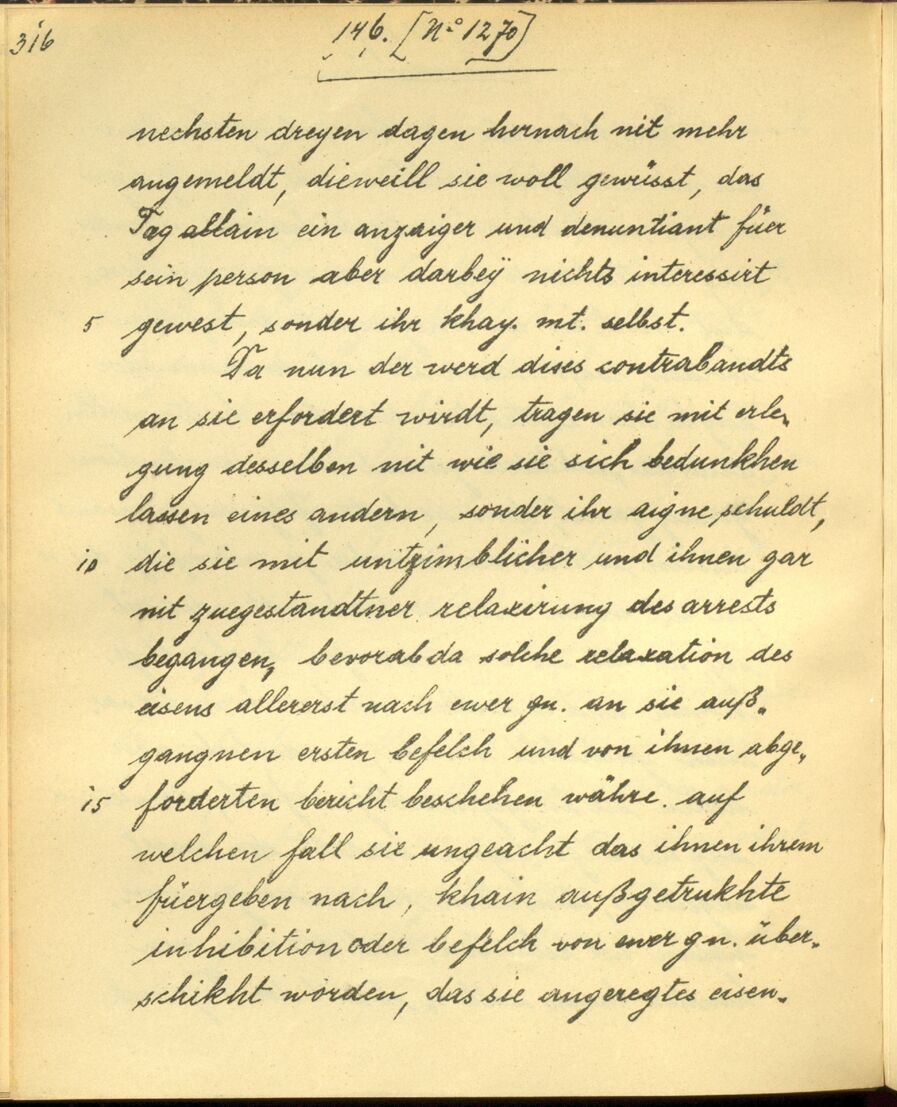 316
146. [No 1270]
nechsten dreyen dagen hernach nit mehr
angemeldt, dieweill sie woll gewüsst, das
Tag allain ein anzaiger und denuntiant füer
sein person aber darbeÿ nichts interessirt
5 gewest, sonder ihr khay. mt. selbst.
Da nun der werd dises contrabandts
an sie erfordert wirdt, tragen sie mit erle„
gung desselben nit wie sie sich bedunkhen
lassen eines andern, sonder ihr aigne schuldt,
10 die sie mit untzimblicher und ihnen gar
nit zuegestandtner relaxirung des arrests
begangen, bevorab da solche relaxation des
eisens allererst nach ewer gn. an sie auß„
gangnen ersten befelch und von ihnen abge„
15 forderten bericht beschehen währe. auf
welchen fall sie ungeacht das ihnen ihrem
füergeben nach, khain außgetrukhte
inhibition oder befelch von ewer gn. über„
schikht worden, das sie angeregtes eisen„